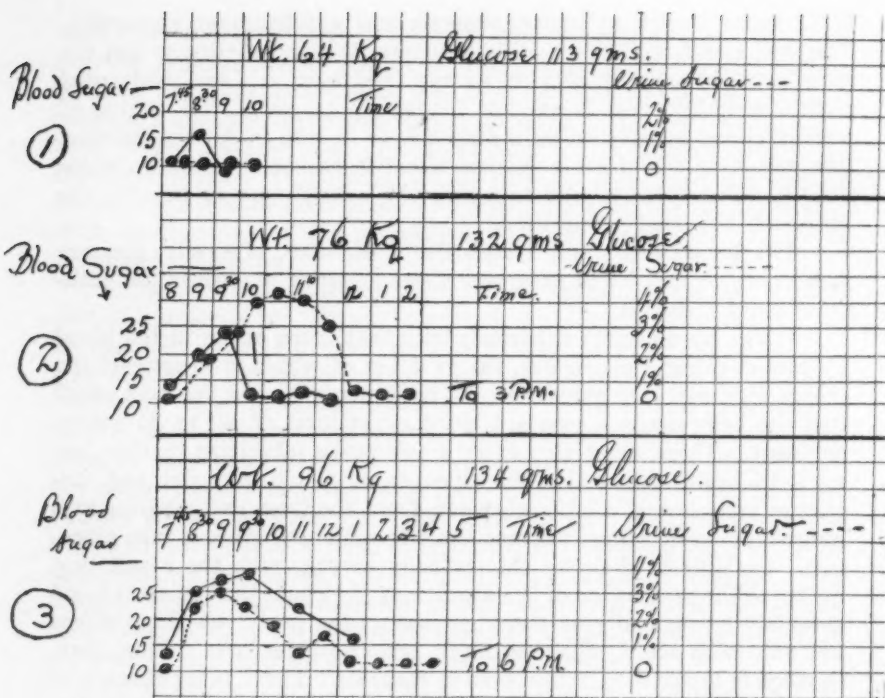 Wt. 64 Kg Glucose 113 gms.
Blood Sugar — Urine Sugar ---
7.45 8.30 9 10 Time
20 2%
① 15 1%
10 0
Wt. 76 Kg 132 gms Glucose.
Blood Sugar Urine Sugar -----
8 9 9 30 10 11 10 12 1 2 Time. 4%
25 3%
② 20 2%
15 1%
10 To 3 P.M. 0
Wt. 96 Kg 134 gms. Glucose.
Blood Sugar
7 45 8 30 9 9 30 10 11 12 1 2 3 4 5 Time Urine Sugar. ----
4%
25 3%
③ 20 2%
15 1%
10 To 6 P.M. 0